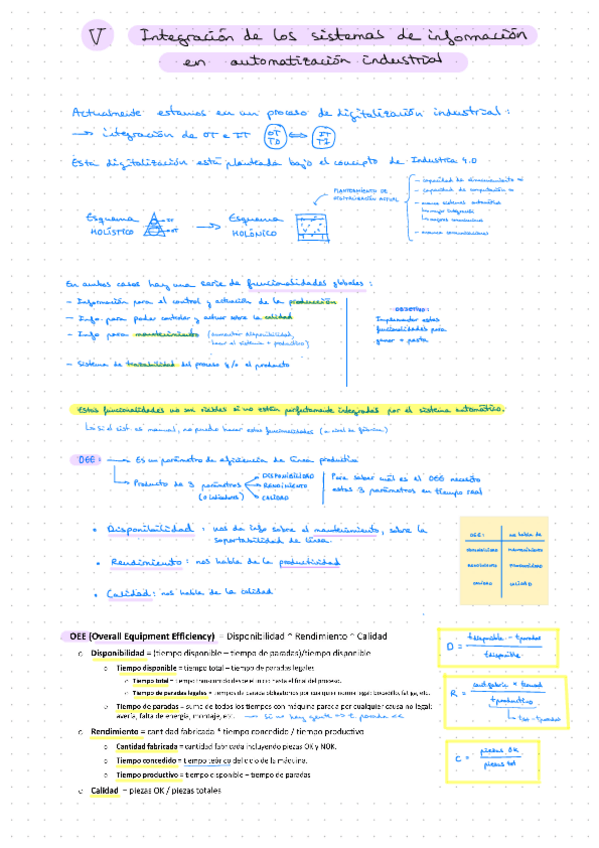 V Integración de los sistemas de información
en automatización industrial
Actualmente estamos en un proceso de digitalización industrial:
→ integración de OT e IT OT TO ⟷ IT TI
Esta digitalización está planteada bajo el concepto de Industria 4.0
PLANTEAMIENTO DE
DIGITALIZACIÓN ACTUAL
- capacidad de almacenamiento ∞
- capacidad de computación ∞
Esquema HOLÍSTICO → Esquema HOLÓNICO
En ambos casos hay una serie de funcionalidades globales:
- Información para el control y actuación de la producción
- Info. para poder controlar y actuar sobre la calidad
- Info para mantenimiento (aumentar disponibilidad,
hacer el sistema + productivo)
- Sistema de trazabilidad del proceso y/o el producto
OBJETIVO:
Implementar estas
funcionalidades para
ganar + pasta
Estas funcionalidades no son viables si no están perfectamente integradas por el sistema automático.
OEE: → Es un parámetro de eficiencia de línea productiva
→ Producto de 3 parámetros
(o cálculos)
DISPONIBILIDAD
RENDIMIENTO
CALIDAD
Para saber cuál es el OEE necesito
estos 3 parámetros en tiempo real
• Disponibilidad: nos da info sobre el mantenimiento, sobre la
soportabilidad de línea.
• Rendimiento: nos habla de la productividad
• Calidad: nos habla de la calidad
OEE: nos habla de
DISPONIBILIDAD MANTENIMIENTO
RENDIMIENTO PRODUCTIVIDAD
CALIDAD CALIDAD
OEE (Overall Equipment Efficiency) = Disponibilidad * Rendimiento * Calidad
o Disponibilidad = (tiempo disponible – tiempo de paradas)/tiempo disponible
o Tiempo disponible = tiempo total – tiempo de paradas legales
o Tiempo total = tiempo transcurrido desde el inicio hasta el final del proceso.
o Tiempo de paradas legales = tiempos de parada obligatorios por cualquier norma legal: bocadillo, fatiga, etc.
o Tiempo de paradas = suma de todos los tiempos con máquina parada por cualquier causa no legal:
avería, falta de energía, montaje, etc. → si no hay gente => t. parada
o Rendimiento = cantidad fabricada * tiempo concedido / tiempo productivo
o Cantidad fabricada = cantidad fabricada incluyendo piezas OK y NOK.
o Tiempo concedido = tiempo teórico del ciclo de la máquina.
o Tiempo productivo = tiempo disponible – tiempo de paradas
o Calidad = piezas OK / piezas totales
D = t disponible - t paradas / t disponible
R = cant fabric * t conced / t productivo
→ t disp - t paradas
C = piezas OK / piezas tot